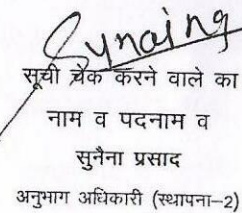 Synaing
सूची चेक करने वाले का
नाम व पदनाम व
सुनैना प्रसाद
अनुभाग अधिकारी (स्थापना-2)